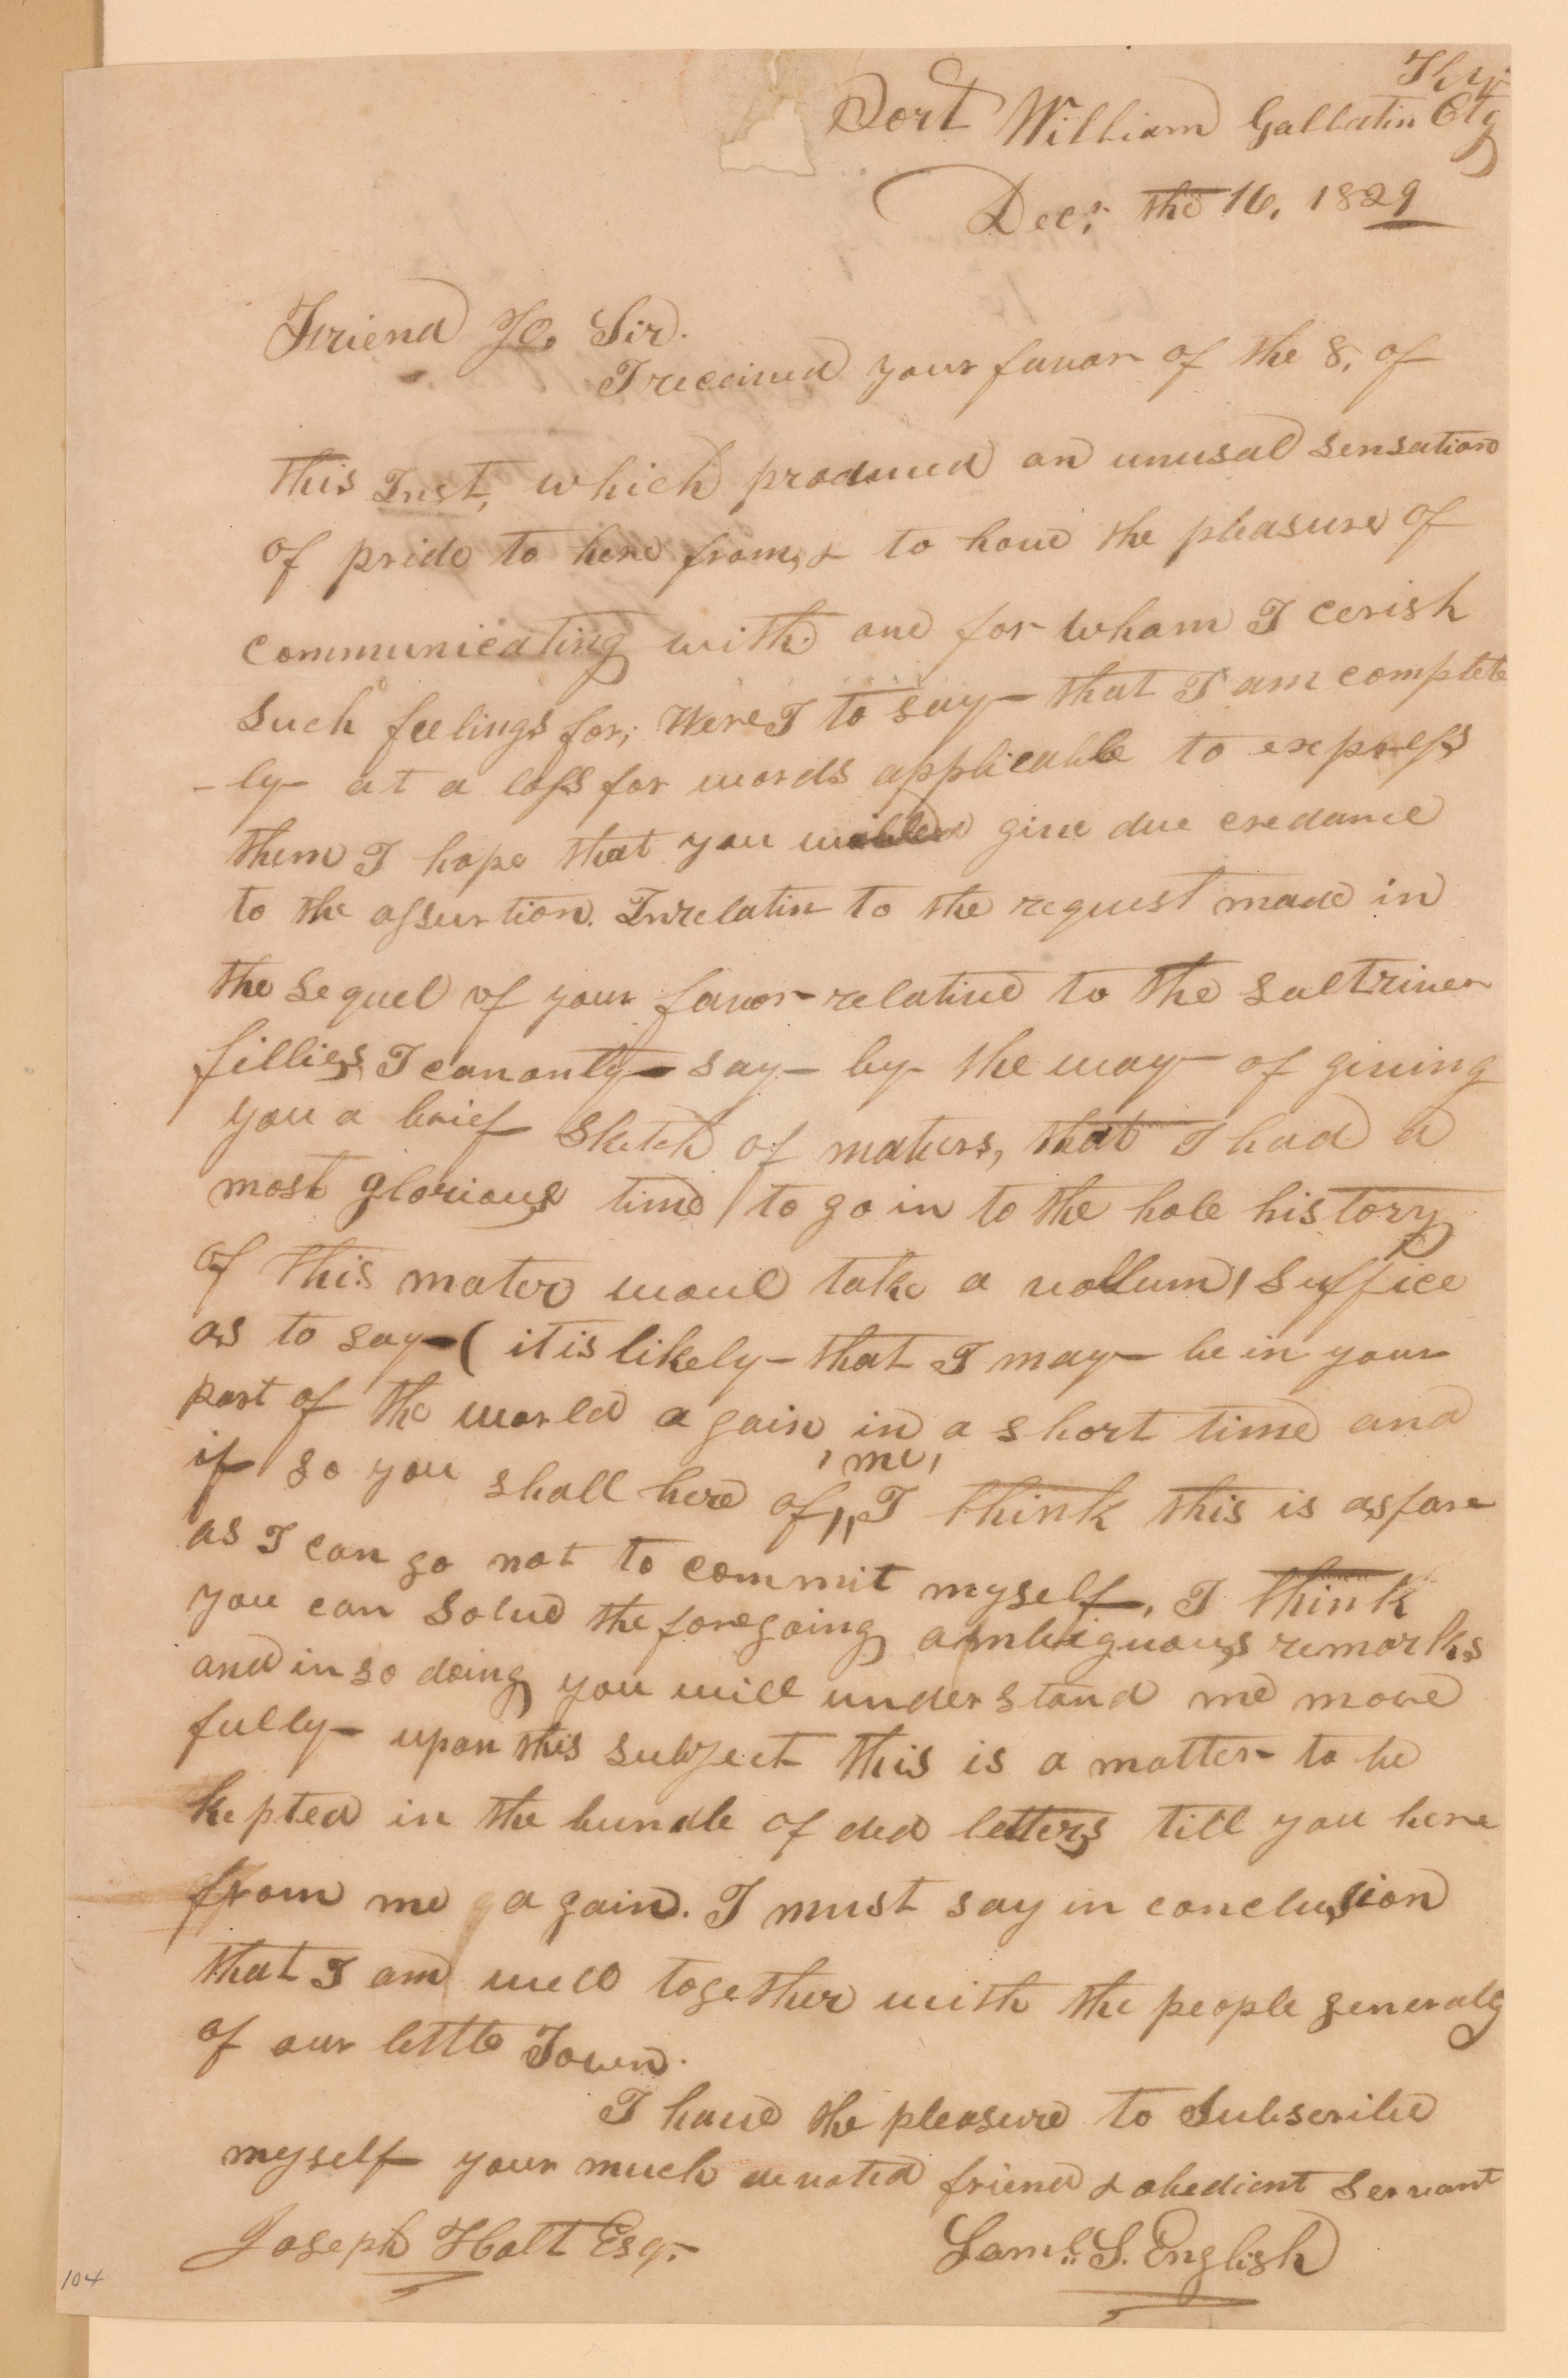 Port William Gallatin Cty Ky.
Decr. the 16, 1829
Friend Jo, Sir.
I received your favor of the 8, of
this Inst, which produced an unusal sensation
of pride to here from, & to have the pleasure of
communicating with one for wham I cerish
such feelings for; Were I to say that I am complete
-ly at a loss for words applicable to express
them I hope that you will give due credance
to the assurtion. Inrelatin to the request made in
the sequel of your favor relative to the saltriver
fillies, I can only say by the way of giving
you a brief sketch of maters, that I had a
most glorious time / to go in to the hole history
of this mater woul take a vollum / suffice
as to say ( it is likely that I may be in your
part of the world again in a short time and
if so you shall here of me, I think this is asfare
as I can go not to commit myself, I think
you can solve the foregoing ambiguous remarks
and in so doing you will understand me more
fully upon this subject this is a matter to be
kepted in the bundle of ded letters till you here
from me again. I must say in conclusion
that I am well together with the people generaly
of our little Town.
I have the pleasure to Subscribe
myself your much devoted friend & obedient servant
Joseph Holt Esqr. Saml. S. English
104